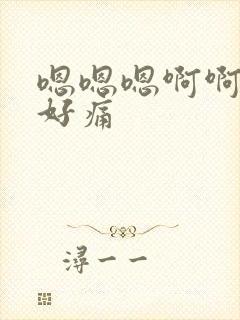 嗯嗯嗯啊啊
好痛
潯一一